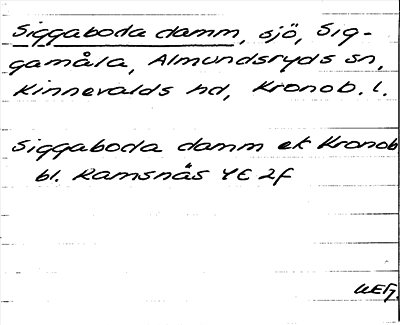 Siggaboda damm, sjö, Sig-
gamåla, Almundsryds sn,
Kinnevalds hd, Kronob. l.
Siggaboda damm ek Kronob
bl. Ramsnäs YE 2f
WEFj.